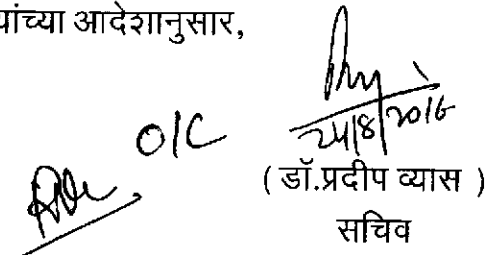 यांच्या आदेशानुसार,
24/8/2016
O/C
( डॉ.प्रदीप व्यास )
सचिव